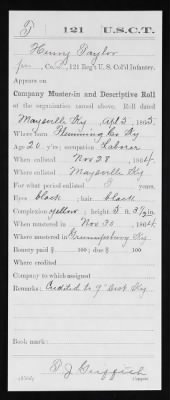 T 121 U.S.C.T.
Henry Taylor
Co. 121 Reg't U. S. Col'd Infantry.
Appears on
Company Muster-in and Descriptive Roll
of the organization named above. Roll dated
Maysville Ky, Apl 3, 1865.
Where born Flemming Co Ky
Age 20 y'rs; occupation Laborer
When enlisted Nov 28, 1864.
Where enlisted Maysville Ky
For what period enlisted years.
Eyes black; hair black
Complexion yellow; height 5 ft. in.
When mustered in Nov 30, 1864
Where mustered in Ky
Bounty paid $ 100; due $ 100
Where credited
Company to which assigned
Remarks: Credited to 9" Dist Ky
Book mark:
Copyist.